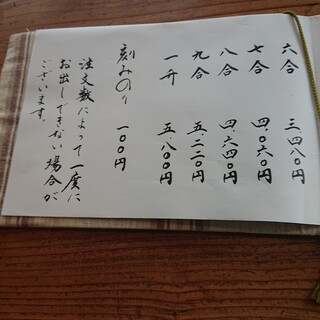 六合 三.四八〇円
七合 四.〇六〇円
八合 四.六四〇円
九合 五.二二〇円
一升 五.八〇〇円
刻みのり 一〇〇円
注文数によって一度に
お出しできない場合が
ございます。